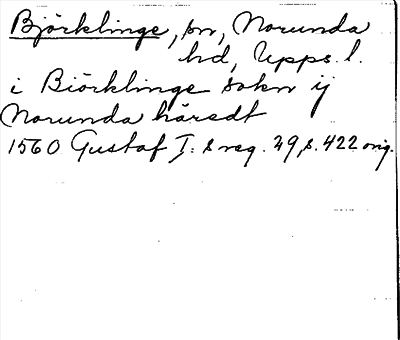 Björklinge, sn, Norunda
hd, Upps. l.
i Biörklinge sokn ij
Norunda häredt
1560 Gustaf I:s reg. 29, s. 422 orig.